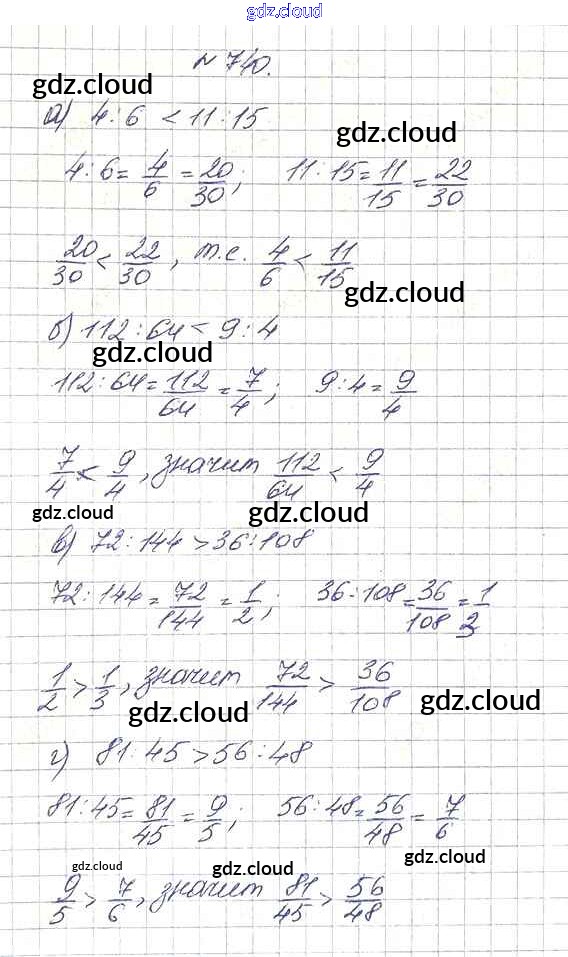 gdz.cloud
№ 740.
gdz.cloud
а) 4:6 < 11:15
gdz.cloud
4:6 = 4/6 = 20/30; 11:15 = 11/15 = 22/30
20/30 < 22/30, т.е. 4/6 < 11/15
gdz.cloud
б) 112:64 < 9:4
gdz.cloud
112:64 = 112/64 = 7/4; 9:4 = 9/4
7/4 < 9/4, значит 112/64 < 9/4
gdz.cloud gdz.cloud
в) 72:144 > 36:108
72:144 = 72/144 = 1/2; 36:108 = 36/108 = 1/3
1/2 > 1/3, значит 72/144 > 36/108
gdz.cloud gdz.cloud
г) 81:45 > 56:48
81:45 = 81/45 = 9/5; 56:48 = 56/48 = 7/6
gdz.cloud gdz.cloud gdz.cloud
9/5 > 7/6, значит 81/45 > 56/48